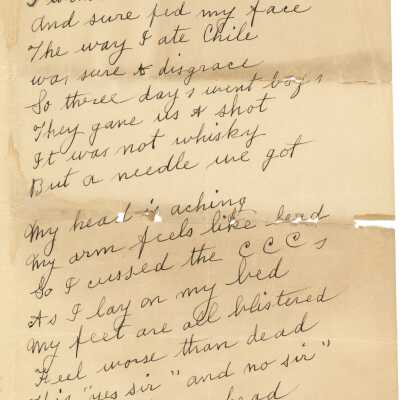 And sure fed my face
The way I ate Chile
was sure A disgrace
So three days went boys
They gave us A shot
It was not whisky
But a needle we got
My head is aching
My arm feels like lead
So I cussed the C C C s
As I lay on my bed
My feet are all blistered
Feel worse than dead
"yes sir" and no sir"
head